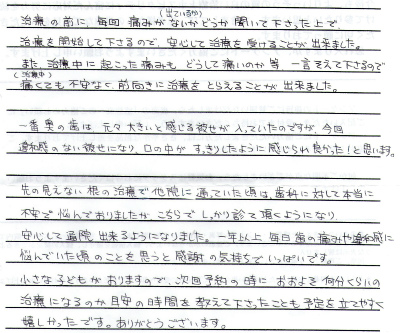 (出ているか)
治療の前に、毎回 痛みがないかどうか 聞いて下さった上で、
治療を開始して下さるので、安心して治療を受けることが出来ました。
また、治療中に起こった痛みも どうして痛いのか等 一言そえて下さるので
(治療中)
痛くても 不安なく、前向きに治療を とらえることが 出来ました。
一番奥の歯は、元々 大きいと感じる被せが 入っていたのですが、今回
違和感のない被せになり、口の中が すっきりしたように感じられ良かった!と思います。
先の見えない 根の治療で他院に 通っていた頃は、歯科に対して本当に
不安で悩んでおりましたが、こちらで しっかり診て頂くようになり、
安心して 通院 出来るようになりました。一年以上 毎日 歯の痛みや違和感に
悩んでいた頃のことを思うと感謝の気持ちで いっぱいです。
小さな子どもがおりますので、次回予約の時に おおよそ何分くらいの
治療になるのか 目安の時間を教えて下さったことも予定を立てやすく
嬉しかったです。ありがとうございます。